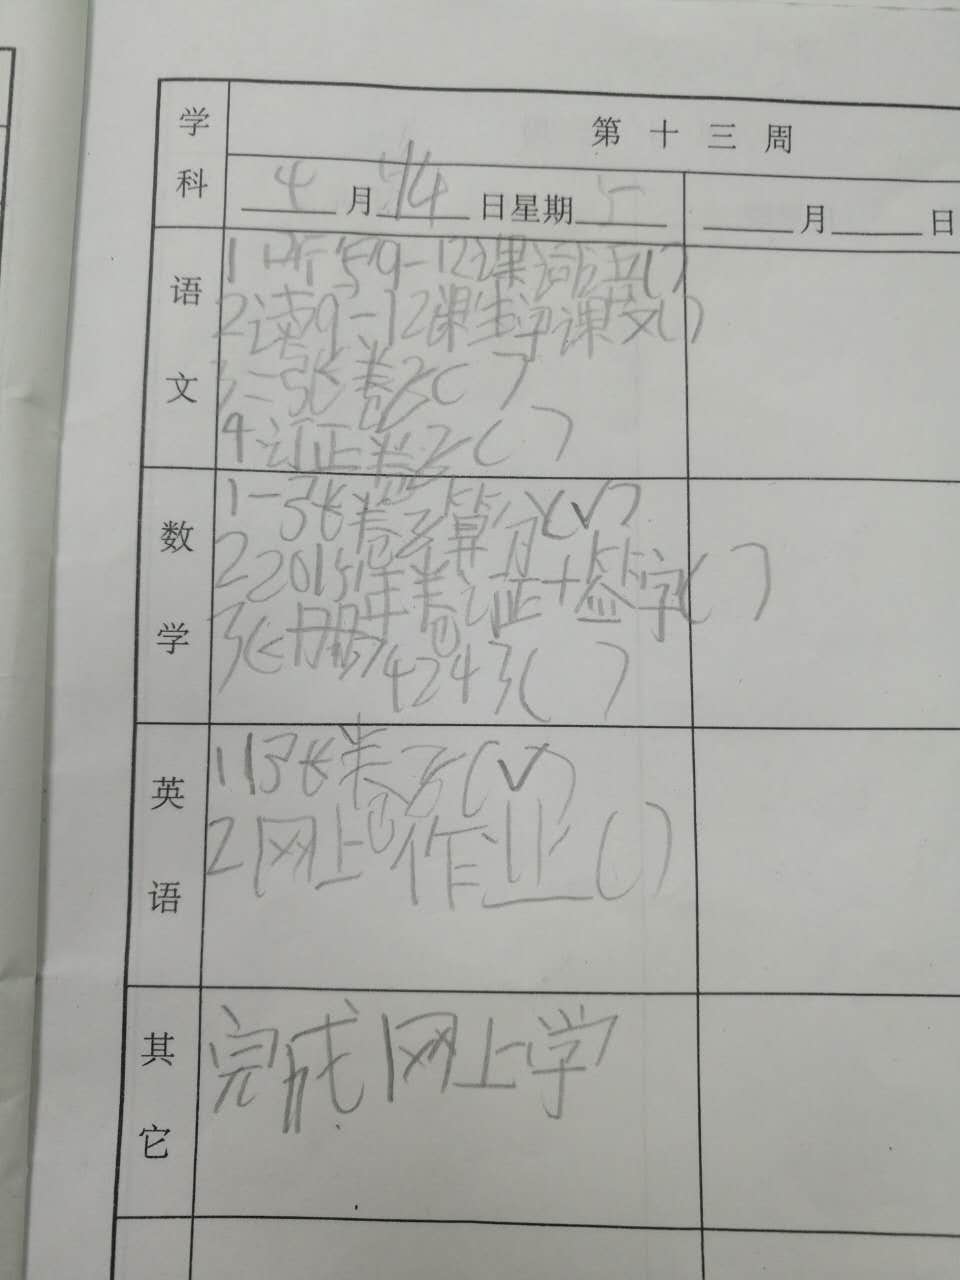 学科
第十三周
4月14日星期五
月 日
语文
1听写9-12课词语( )
2读9-12课生字课文( )
3一张卷②( )
4.订正卷②( )
数学
1一张卷②算分(√)
22015年卷①订正+签字( )
3《册册》4243( )
英语
1 1张卷子①(√)
2网上作业( )
其它
完成网上学